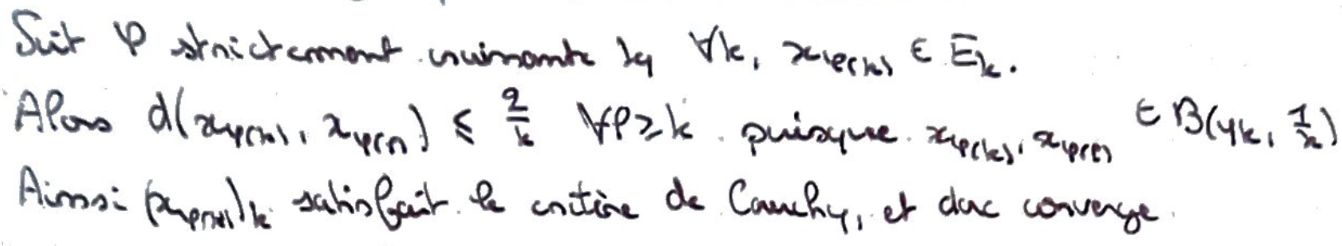 Soit φ strictement croissante tq ∀k, x_φ(k) ∈ E_k.
Alors d(x_φ(k), x_φ(p)) ≤ 2/k ∀p≥k puisque x_φ(k), x_φ(p) ∈ B(y_k, 1/k)
Ainsi (x_φ(k))_k satisfait le critère de Cauchy, et donc converge.